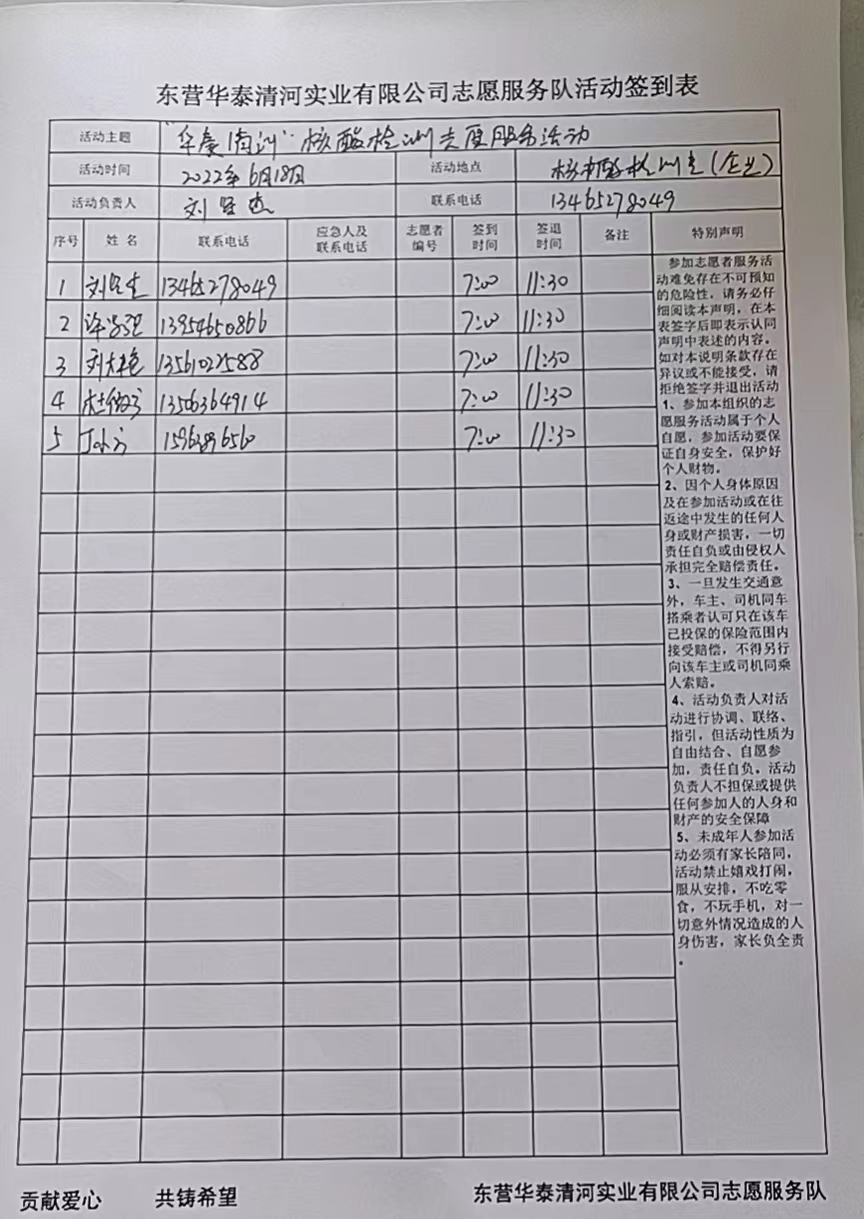 东营华泰清河实业有限公司志愿服务队活动签到表
活动主题 "华泰清河"核酸检测志愿服务活动
活动时间 2022年6月18日 活动地点 核酸检测点(企业)
活动负责人 刘 联系电话 13465278049
序号 姓名 联系电话 应急人及联系电话 志愿者编号 签到时间 签退时间 备注 特别声明
1 刘 13465278049 7:00 11:30
2 许 13954650866 7:00 11:30
3 刘 13561022588 7:00 11:30
4 杜 13506364914 7:00 11:30
5 7:00 11:30
参加志愿者服务活
动难免存在不可预知
的危险性，请务必仔
细阅读本声明，在本
表签字后即表示认同
声明中表述的内容。
如对本说明条款存在
异议或不能接受，请
拒绝签字并退出活动
1、参加本组织的志
愿服务活动属于个人
自愿，参加活动要保
证自身安全，保护好
个人财物。
2、因个人身体原因
及在参加活动或在往
返途中发生的任何人
身或财产损害，一切
责任自负或由侵权人
承担完全赔偿责任。
3、一旦发生交通意
外，车主、司机同车
搭乘者认可只在该车
已投保的保险范围内
接受赔偿，不得另行
向该车主或司机同乘
人索赔。
4、活动负责人对活
动进行协调、联络、
指引，但活动性质为
自由结合、自愿参
加，责任自负。活动
负责人不担保或提供
任何参加人的人身和
财产的安全保障
5、未成年人参加活
动必须有家长陪同，
活动禁止嬉戏打闹，
服从安排，不吃零
食，不玩手机，对一
切意外情况造成的人
身伤害，家长负全责
。
贡献爱心 共铸希望 东营华泰清河实业有限公司志愿服务队